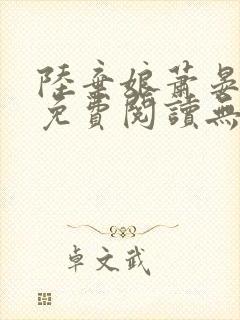 陸棄娘蕭晏
免費閱讀無
卓文武